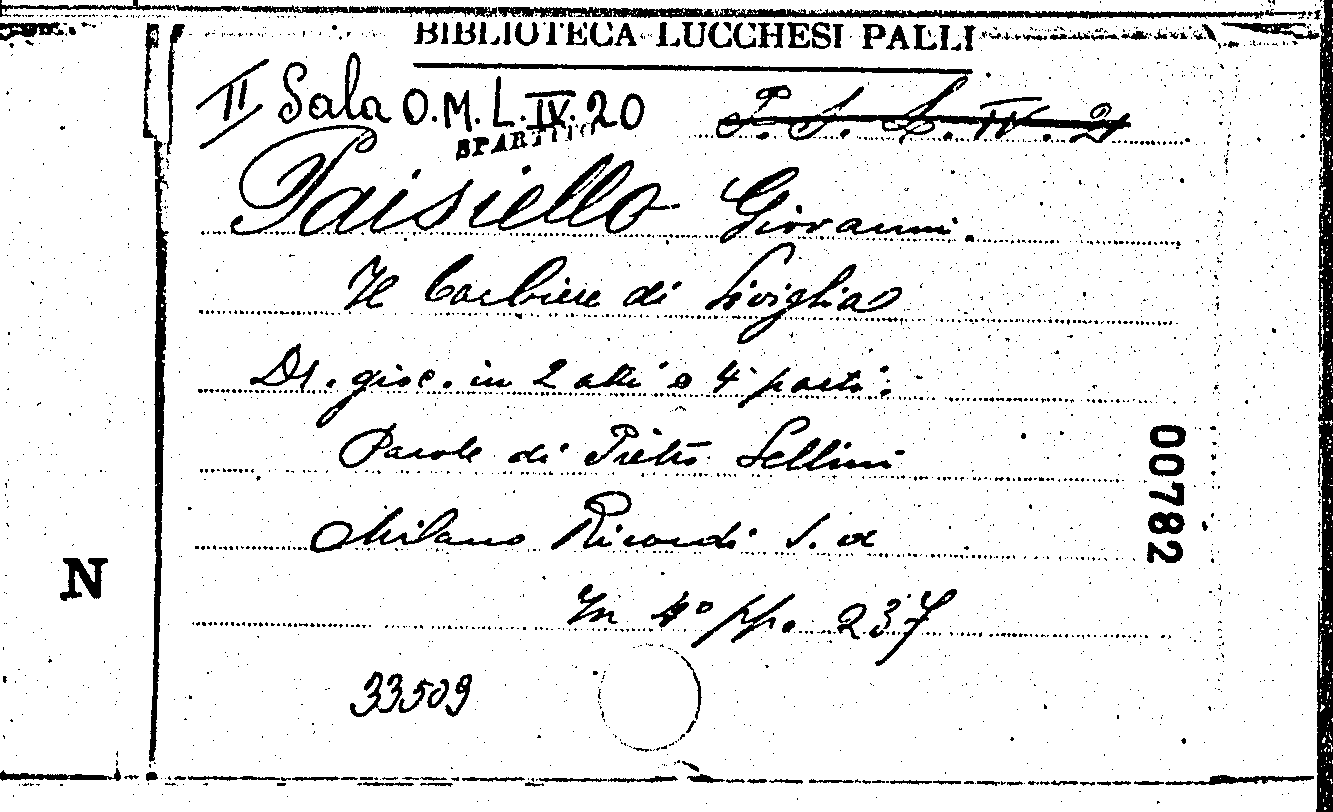 BIBLIOTECA LUCCHESI PALLI
II Sala O.M.L.IV.20 P. S. L. IV. 21
SPARTITO
Paisiello Giovanni.
Il barbiere di Siviglia
Dr. gioc. in 2 atti e 4 parti.
Parole di Pietro Sellini
Milano Ricordi S. a
In 4° pp. 237
33509
00782
N